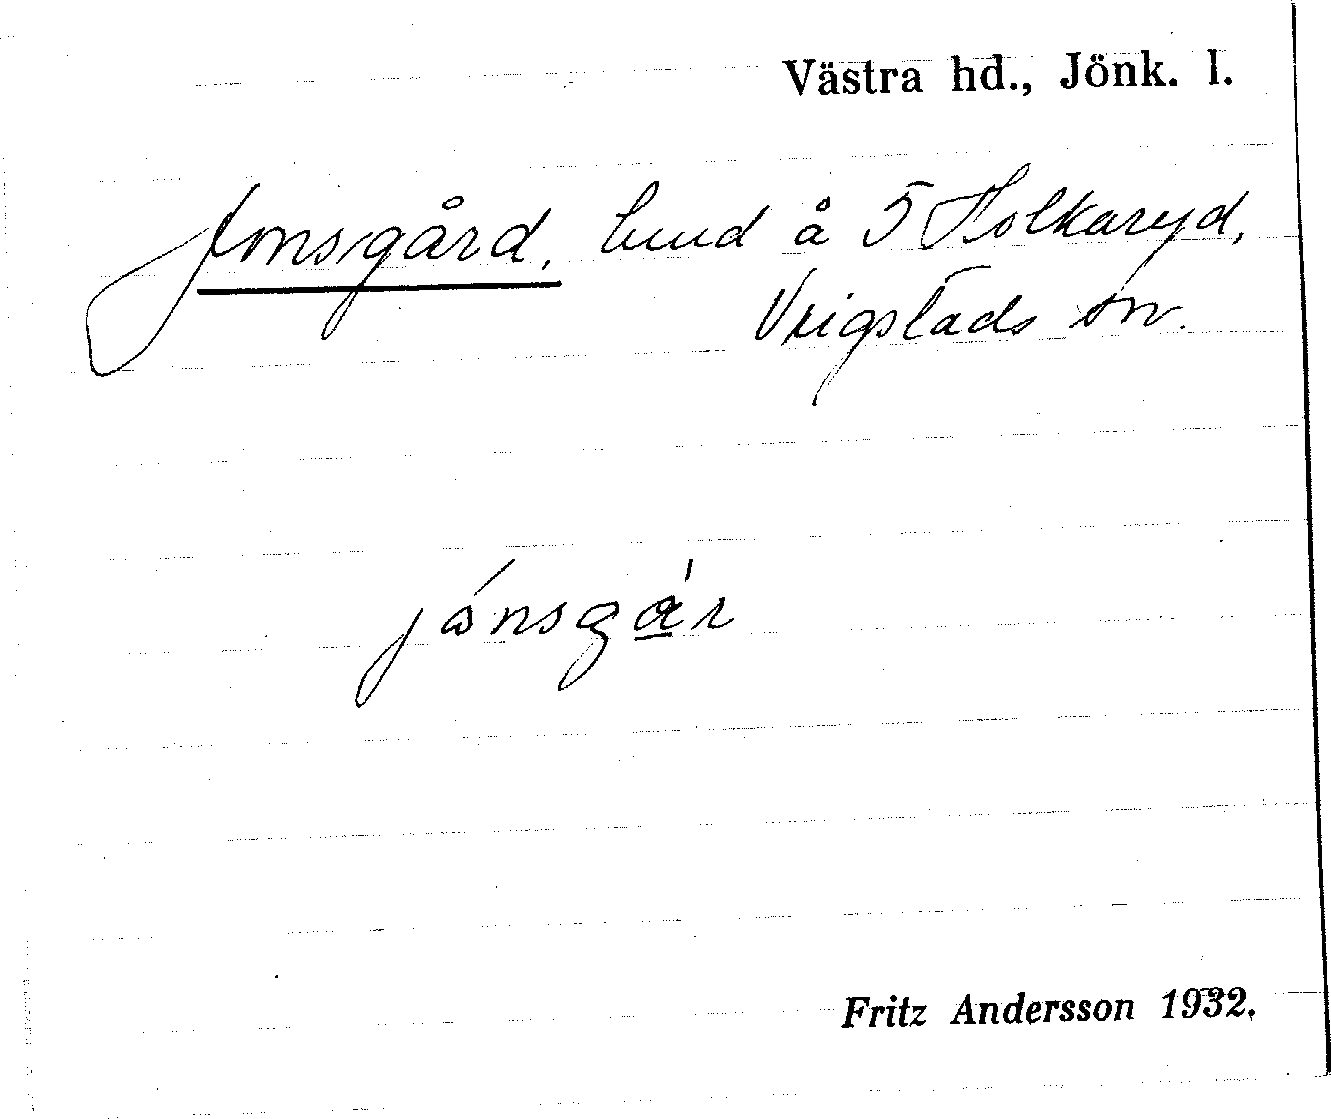 Västra hd., Jönk. l.
Jonsgård, hmd å 5 Holkaryd,
Vrigstads sn.
jónsgά̲r
Fritz Andersson 1932.